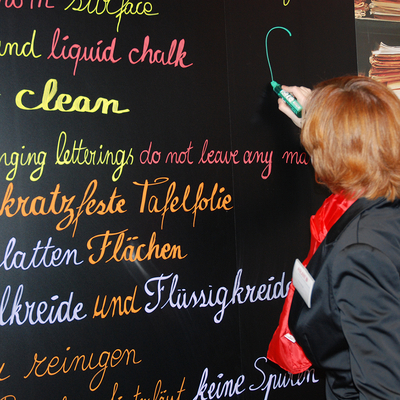 surface
and liquid chalk
clean
nging letterings do not leave any ma
kratzfeste Tafelfolie
latten Flächen
lkreide und Flüssigkreide
reinigen
keine Spuren